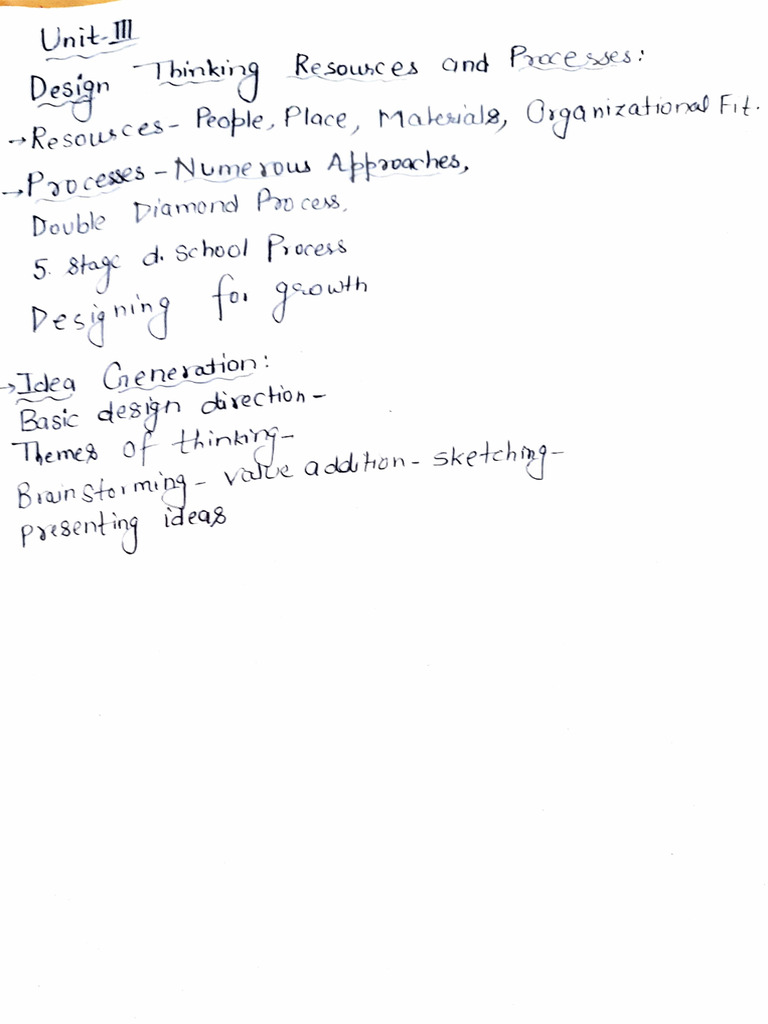 Unit-III
Design Thinking Resources and Processes:
→Resources- People, Place, Materials, Organizational Fit.
→Processes-Numerous Approaches,
Double Diamond Process,
5. Stage d. School Process
Designing for growth
→Idea Generation:
Basic design direction-
Themes of thinking-
Brainstorming- value addition- sketching-
presenting ideas